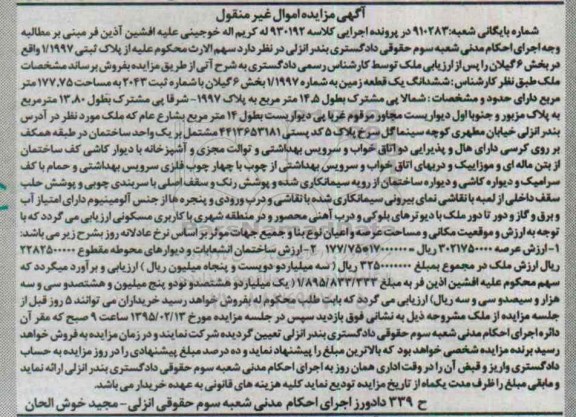 آگهی مزایده اموال غیر منقول
شماره بایگانی شعبه: ۹۱۰۲۸۳ در پرونده اجرایی کلاسه ۹۳۰۱۹۲ له کریم اله خوجینی علیه افشین آذین فر مبنی بر مطالبه
وجه اجرای احکام مدنی شعبه سوم حقوقی دادگستری بندر انزلی در نظر دارد سهم الارث محکوم علیه از پلاک ثبتی ۱/۱۹۹۷ واقع
در بخش ۶ گیلان را پس از ارزیابی ملک توسط کارشناس رسمی دادگستری به شرح آتی از طریق مزایده بفروش برساند مشخصات
ملک طبق نظر کارشناس: ششدانگ یک قطعه زمین به شماره ۱/۱۹۹۷ بخش ۶ گیلان با شماره ثبت ۲۰۴۳ به مساحت ۱۷۷,۷۵ متر
مربع دارای حدود و مشخصات: شمالا پی مشترک بطول ۱۴,۵ متر مربع به پلاک ۱۹۹۷- شرقا پی مشترک بطول ۱۳,۸۰ متر مربع
به پلاک مزبور و جنوبا اول دیواریست مجاور مرقوم غربا پی دیواریست بطول ۱۴ متر مربع بشارع عام که ملک مورد نظر در آدرس
بندر انزلی خیابان مطهری کوچه سینما گل سرخ پلاک ۵ کد پستی ۴۴۱۳۶۵۳۱۸۱ مشتمل بر یک واحد ساختمان در طبقه همکف
بر روی کرسی دارای هال و پذیرایی دو اتاق خواب و سرویس بهداشتی و توالت مجزی و آشپزخانه با دیوار کاشی کف ساختمان
از بتن ماله ای و موزاییک و دربهای اتاق خواب و سرویس بهداشتی از چوب با چهار چوب فلزی سرویس بهداشتی و حمام با کف
سرامیک و دیواره کاشی و دیواره ساختمان از رویه سیمانکاری شده و پوشش رنگ و سقف اصلی با سربندی چوبی و پوشش حلب
سقف داخلی از لمبه با نقاشی نمای بیرونی سیمانکاری شده با نقاشی و درب ورودی و پنجره ها از جنس آلومینیوم دارای امتیاز آب
و برق و گاز و دور تا دور ملک با دیوترهای بلوکی و درب آهنی محصور و در منطقه شهری با کاربری مسکونی ارزیابی می گردد که با
توجه به ارزش و موقعیت مکانی و مساحت عرصه و اعیان نوع بنا و جمیع جهات موثر بر اساس نرخ عادلانه روز بشرح زیر می باشد:
۱- ارزش عرصه ۳۰۲۱۷۵۰۰۰۰ ریال = ۱۷۷/۷۵@۱۷۰۰۰۰۰۰ ۲- ارزش ساختمان انشعابات و دیوارهای محوطه مقطوع ۲۲۸۲۵۰۰۰۰
ریال ارزش ملک در مجموع بمبلغ ۳۲۵۰۰۰۰۰۰۰ ریال (سه میلیارد و دویست و پنجاه میلیون ریال) ارزیابی و برآورد میگردد که
سهم محکوم علیه افشین آذین فر به مبلغ ۱/۸۹۵/۸۳۳/۳۳۳ (یک میلیارد و هشتصد و نود و پنج میلیون و هشتصد و سی و سه
هزار و سیصد و سی و سه ریال) ارزیابی می گردد که بابت طلب محکوم له بفروش خواهد رسید خریداران می توانند ۵ روز قبل از
جلسه مزایده از ملک مشروحه ذیل به نشانی فوق بازدید سپس در جلسه مزایده مورخ ۱۳۹۵/۰۲/۱۳ ساعت ۹ صبح که مقر آن
دائره اجرای احکام مدنی شعبه سوم حقوقی دادگستری بندر انزلی تعیین گردیده شرکت نمایند و در زمان مزایده به فروش خواهد
رسید برنده مزایده شخصی خواهد بود که بالاترین مبلغ را پیشنهاد نماید و ده درصد مبلغ پیشنهادی را در روز مزایده به حساب
دادگستری واریز و قبض آن را در وقت اداری همان روز به اجرای احکام مدنی شعبه سوم حقوقی دادگستری بندر انزلی ارائه نماید
و مابقی مبلغ را ظرف مدت یکماه از تاریخ مزایده تودیع نماید کلیه هزینه های قانونی به عهده خریدار می باشد.
ح ۳۳۹ دادورز اجرای احکام مدنی شعبه سوم حقوقی انزلی- مجید خوش الحان